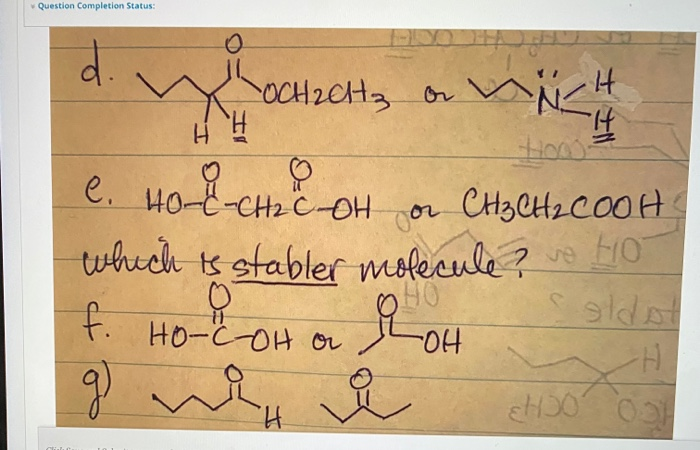 Question Completion Status:
d. O OCH2CH3 or N H
H H H
e. HO-C-CH2C-OH or CH3CH2COOH
O O
which is stabler molecule?
f. HO-C-OH or OH
O O
g) O H O